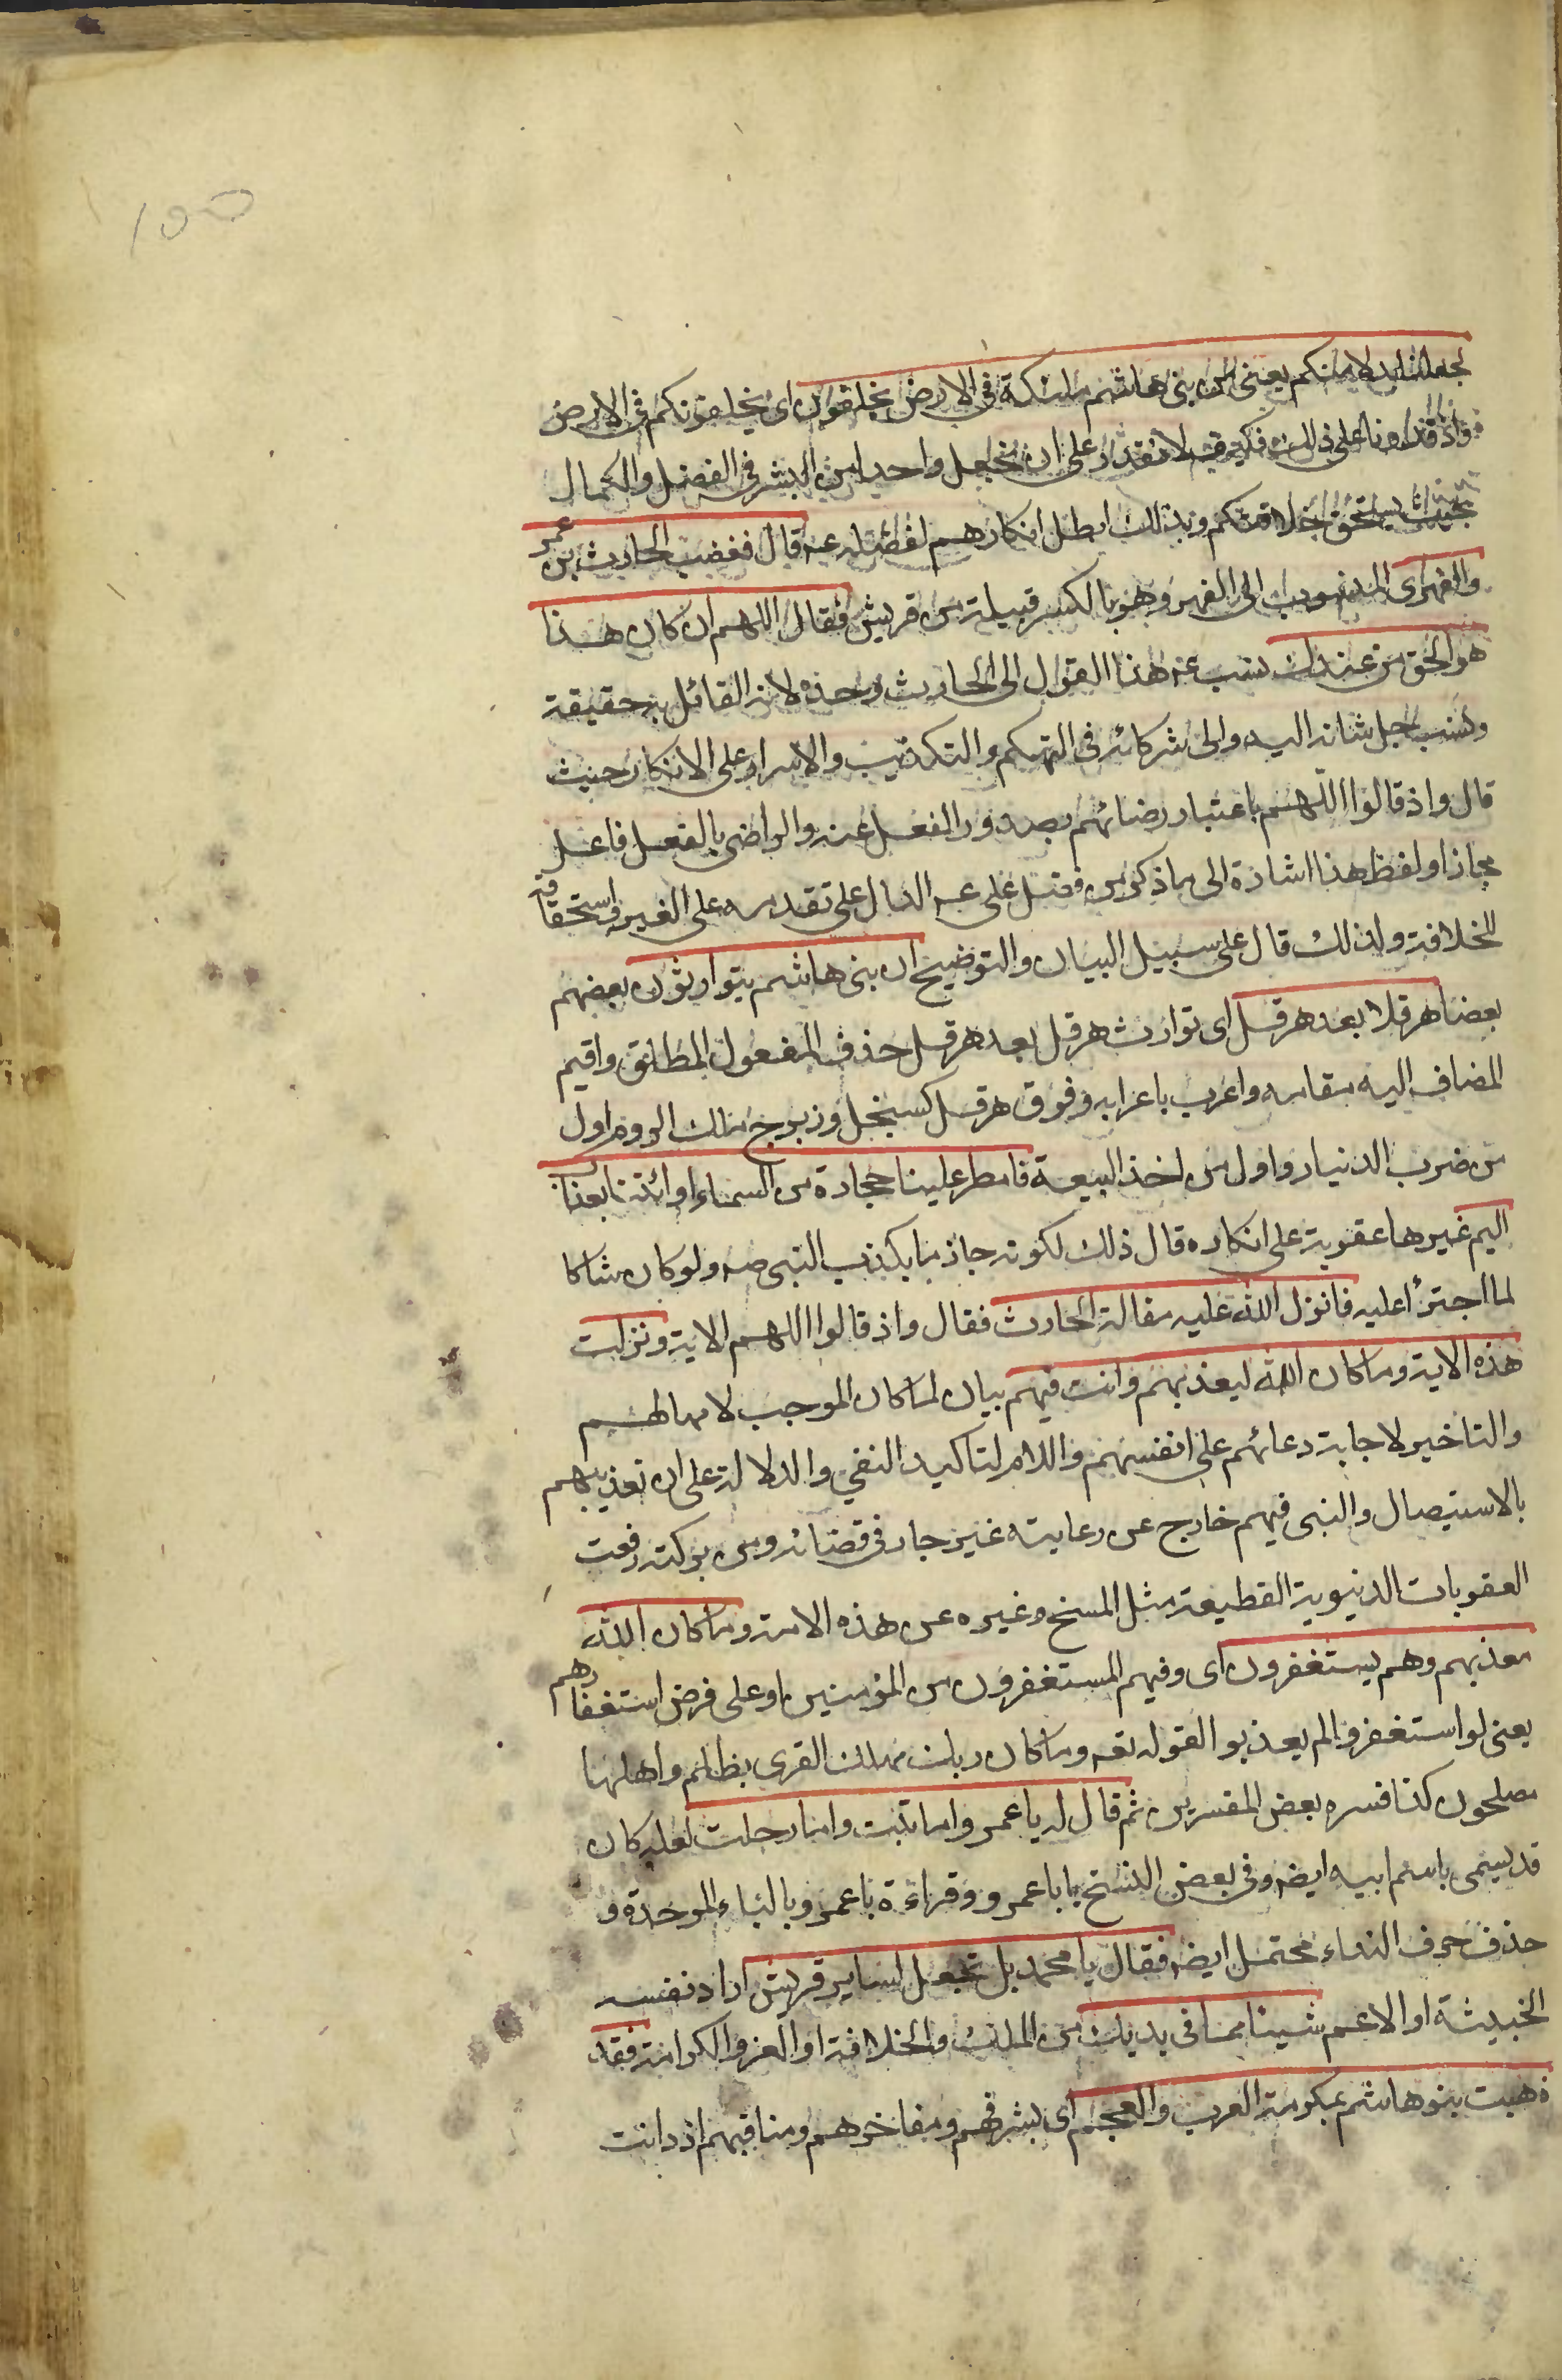 ١٥٥
لجعلنا بدلا منكم يعنى من بنى هاشم ملئكة فى الارض يخلفون اى يخلفونكم فى الارض
واذ قدرنا على ذلك فكيف لا نقدر على ان نجعل واحدا من البشر فى الفضل والكمال
بحيث يستحق خلافتكم وبذلك ابطل انكارهم لفضله عم قال فغضب الحارث بن عمرو
والفهرى المنسوب الى الفهر وهو بالكسر قبيلة من قريش فقال اللهم ان كان هذا
هو الحق من عندك نسب عم هذا القول الى الحارث وحده لانه القائل به حقيقة
ونسب جل شانه اليه والى شركائه فى التهكم والتكذيب والاسرار على الانكار حيث
قال واذ قالوا اللهم باعتبار رضائهم بصدور الفعل عنه والراضى بالفعل فاعل
مجازا ولفظ هذا اشارة الى ما ذكر من فضل على عم الدال على تقدمه على الغير واستحقاقه
للخلافة ولذلك قال على سبيل البيان والتوضيح ان بنى هاشم يتوارثون بعضهم
بعضا هرقلا بعد هرقل اى توارث هرقل بعد هرقل حذف المفعول المطلق واقيم
المضاف اليه مقامه واعرب باعرابه وفوق هرقل كسبحل وزبرج ملك الروم اول
من ضرب الدنيار واول من اخذ البيعة فامطر علينا حجارة من السماء او ائتنا بعذاب
اليم غيرها عقوبة على انكاره قال ذلك لكونه جاذما بكذب النبى صم ولو كان شاكا
لما اجترأ عليه فانزل الله عليه مقالة الحارث فقال واذ قالوا اللهم الاية ونزلت
هذه الاية وما كان الله ليعذبهم وانت فيهم بيان لما كان الموجب لامهالهم
والتاخير لاجابة دعائهم على انفسهم واللام لتاكيد النفي والدلالة على ان تعذيبهم
بالاستيصال والنبى فيهم خارج عن رعايته غير جار فى قضائه ومن بركته رفعت
العقوبات الدنيوية القطيعة مثل المسخ وغيره عن هذه الامة وما كان الله
معذبهم وهم يستغفرون اى وفيهم المستغفرون من المؤمنين او على فرض استغفارهم
يعنى لو استغفروا لم يعذبوا لقوله تعه وما كان ربك مهلك القرى بظلم واهلها
مصلحون كذا فسره بعض المفسرين ثم قال له يا عمرو اما تبت واما رحلت لعله كان
قد يسمى باسم ابيه ايضا وفى بعض النسخ يا ابا عمرو وقراءة با عمرو بالباء الموحدة و
حذف حرف النداء محتمل ايضا فقال يا محمد بل تجعل لساير قريش اراد نفسه
الخبيثة او الاعم شيئا مما فى يديك من الملك والخلافة او العز والكرامة فقد
ذهبت بنو هاشم بمكرمة العرب والعجم اى بشرفهم ومفاخرهم ومناقبهم اذ دانت